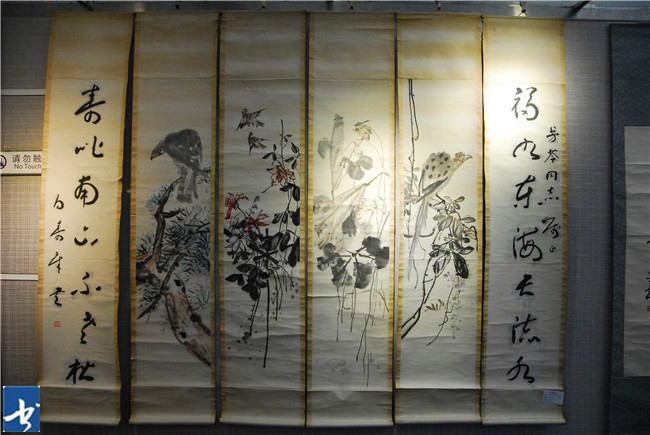 福如东海长流水
同志
寿比南山不老松
白寿章书
请勿触
No Touch